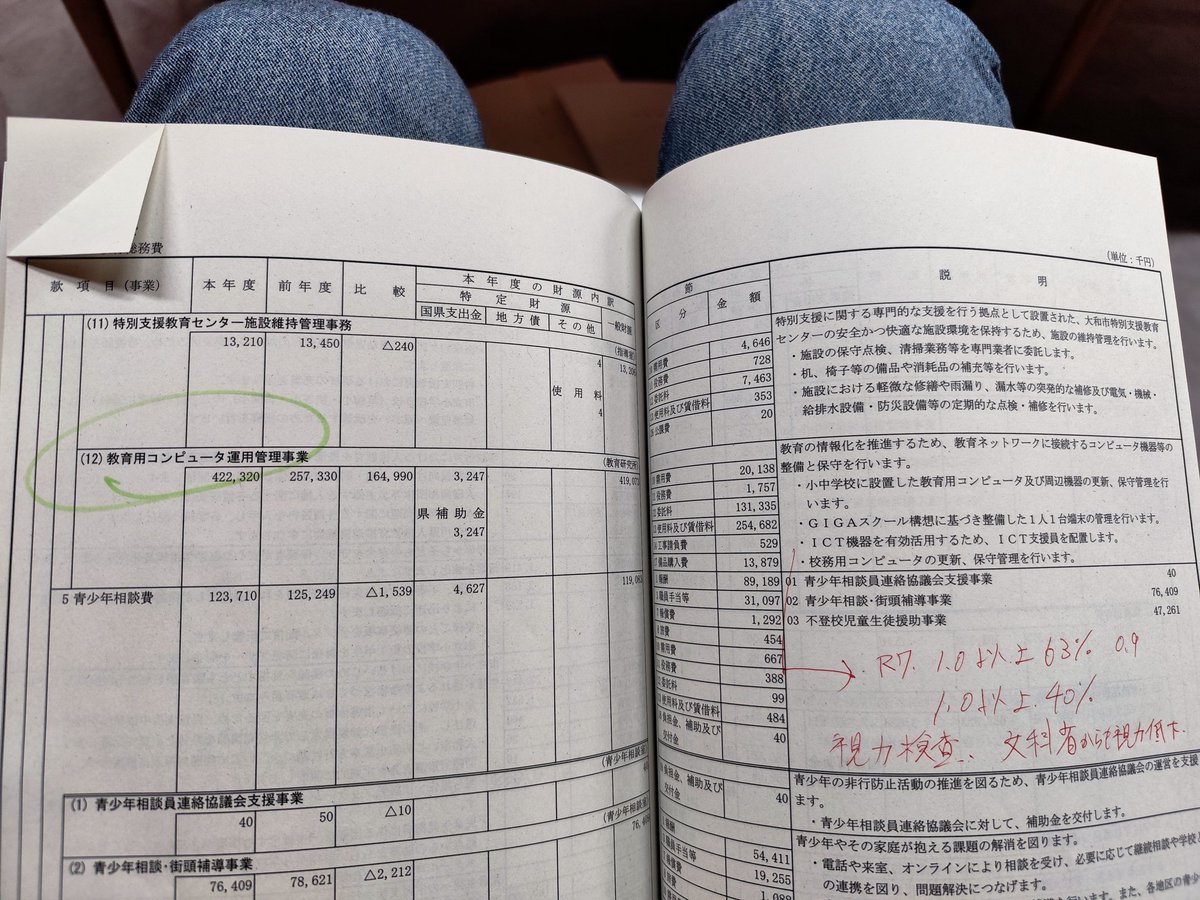 総務費
款 項 目 (事業) 本年度 前年度 比較 本年度の財源内訳
特定財源 一般財源
国県支出金 地方債 その他
(11) 特別支援教育センター施設維持管理事務
(指導室)
13,210 13,450 △240 4
使用料
4
(12) 教育用コンピュータ運用管理事業
(教育研究所)
422,320 257,330 164,990 3,247
県補助金
3,247
5 青少年相談費 123,710 125,249 △1,539 4,627
(1) 青少年相談員連絡協議会支援事業
40 50 △10
(2) 青少年相談・街頭補導事業
76,409 78,621 △2,212
(単位:千円)
節 説明
区分 金額
需用費 4,646
役務費 728
委託料 7,463
使用料及び賃借料 353
公課費 20
需用費 20,138
役務費 1,757
委託料 131,335
使用料及び賃借料 254,682
工事請負費 529
備品購入費 13,879
報酬 89,189
職員手当等 31,097
報償費 1,292
旅費 454
需用費 667
役務費 388
委託料 99
使用料及び賃借料 484
負担金、補助及び
交付金 40
負担金、補助及び
交付金 40
報酬 54,411
職員手当等 19,255
特別支援に関する専門的な支援を行う拠点として設置された、大和市特別支援教育
センターの安全かつ快適な施設環境を保持するため、施設の維持管理を行います。
・施設の保守点検、清掃業務等を専門業者に委託します。
・机、椅子等の備品や消耗品の補充等を行います。
・施設における軽微な修繕や雨漏り、漏水等の突発的な補修及び電気・機械・
給排水設備・防災設備等の定期的な点検・補修を行います。
教育の情報化を推進するため、教育ネットワークに接続するコンピュータ機器等の
整備と保守を行います。
・小中学校に設置した教育用コンピュータ及び周辺機器の更新、保守管理を行
います。
・GIGAスクール構想に基づき整備した1人1台端末の管理を行います。
・ICT機器を有効活用するため、ICT支援員を配置します。
・校務用コンピュータの更新、保守管理を行います。
01 青少年相談員連絡協議会支援事業 40
02 青少年相談・街頭補導事業 76,409
03 不登校児童生徒援助事業 47,261
R7. 1.0以上63% 0.9
1.0以上40%
視力検査.. 文科省からも視力低下.
青少年の非行防止活動の推進を図るため、青少年相談員連絡協議会の運営を支援
ます。
・青少年相談員連絡協議会に対して、補助金を交付します。
青少年やその家庭が抱える課題の解消を図ります。
・電話や来室、オンラインにより相談を受け、必要に応じて継続相談や学校と
の連携を図り、問題解決につなげます。